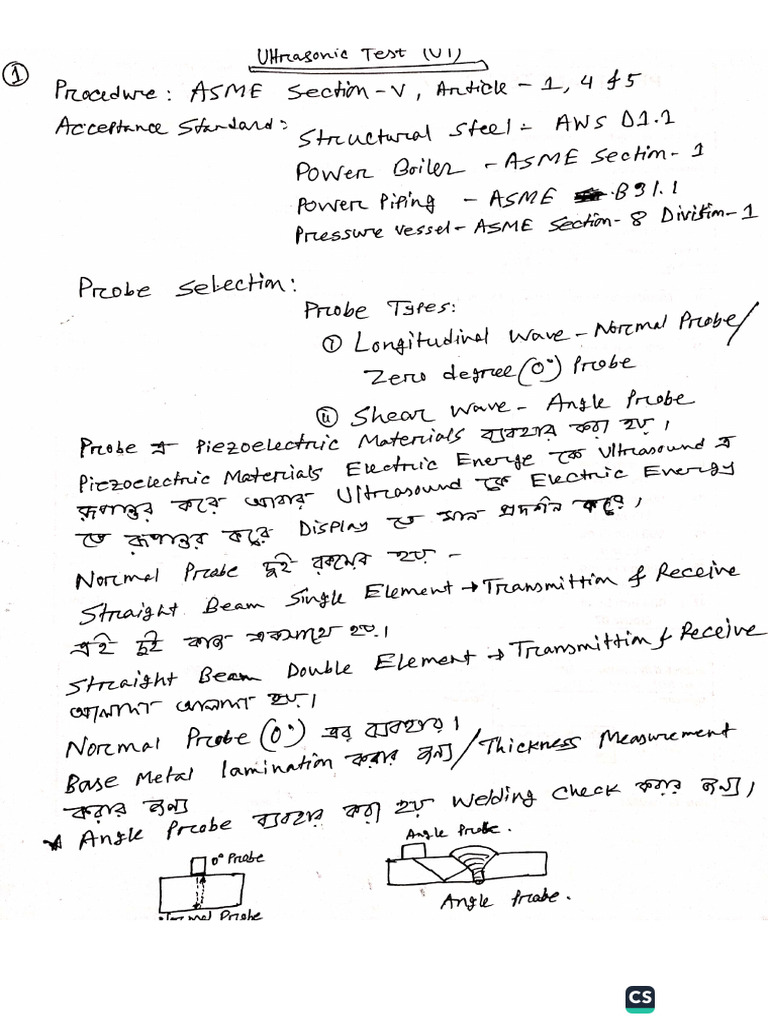 Ultrasonic Test (UT)
①
Procedure: ASME Section-V, Article-1, 4 & 5
Acceptance Standard:
Structural Steel - AWS D1.1
Power Boiler - ASME Section-1
Power Piping - ASME B31.1
Pressure Vessel - ASME Section-8 Division-1
Probe Selection:
Probe Types:
① Longitudinal Wave - Normal Probe/
Zero degree (0°) Probe
② Shear Wave - Angle Probe
Probe এ Piezoelectric Materials ব্যবহার করা হয়।
Piezoelectric Materials Electric Energy কে Ultrasound এ
রূপান্তর করে আবার Ultrasound কে Electric Energy
তে রূপান্তর করে Display তে মান প্রদর্শন করে।
Normal Probe দুই রকমের হয় -
Straight Beam Single Element → Transmittion & Receive
এই দুই কাজ একসাথে হয়।
Straight Beam Double Element → Transmittion & Receive
আলাদা আলাদা হয়।
Normal Probe (0°) এর ব্যবহার।
Base Metal lamination করার জন্য / Thickness Measurement
করার জন্য
* Angle Probe ব্যবহার করা হয় Welding Check করার জন্য।
Angle Probe.
0° Probe
Normal Probe
Angle Probe.
CS